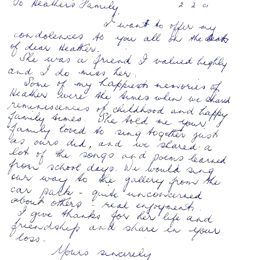 To Heather's Family 2 2 01
I want to offer my
condolences to you all in the death
of dear Heather.
She was a friend I valued highly
and I do miss her.
Some of my happiest memories of
Heather were the times when we shared
reminiscences of childhood and happy
family times. She told me your
family loved to sing together just
as ours did, and we shared a
lot of the songs and poems learned
from school days. We would sing
our way to the gallery from the
car park - quite unconcerned
about others - real enjoyment.
I give thanks for her life and
friendship and share in your
loss.
Yours sincerely